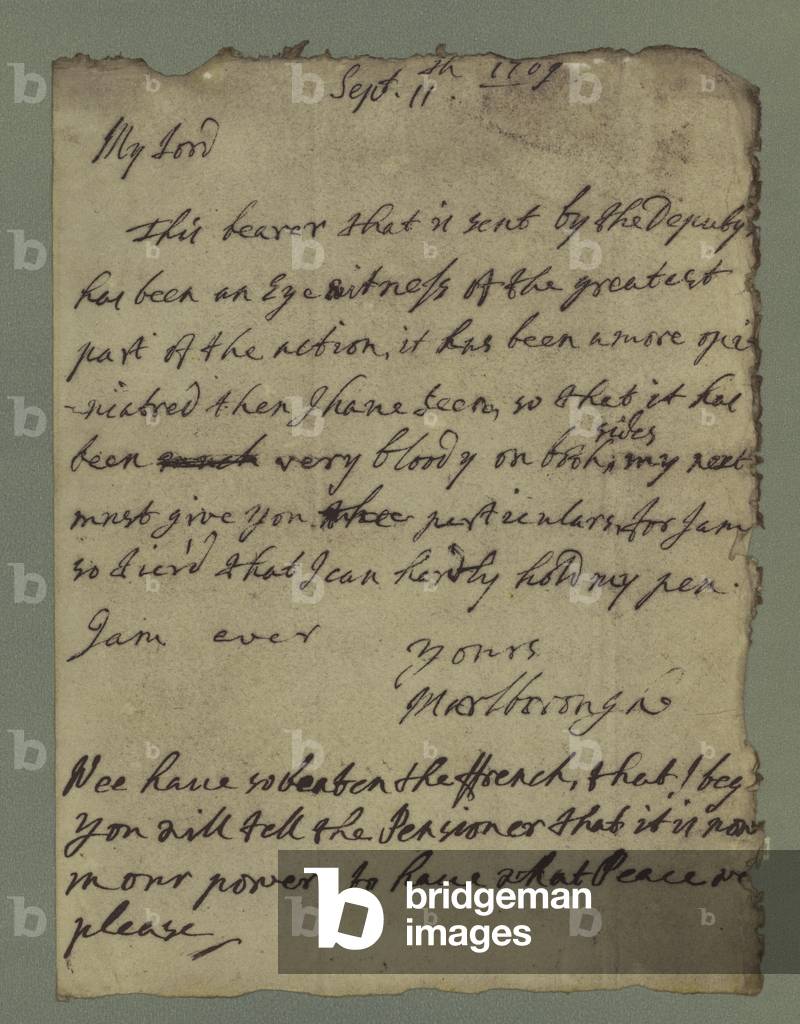 Sept. 11th. 1709
My Lord
This bearer that is sent by the Deputy
has been an Eye witness of the greatest
part of the action, it has been a more opi-
-niatred then I have seen, so that it has
been much very bloody on both sides, my next
must give you thee particulars, for I am
so tier'd that I can hardly hold my pen.
I am ever
yours
Marlborough
Wee have so beaten the ffrench, that I beg
you will tell the Pensioner that it is now
in our power to have what Peace we
please
bridgeman
images